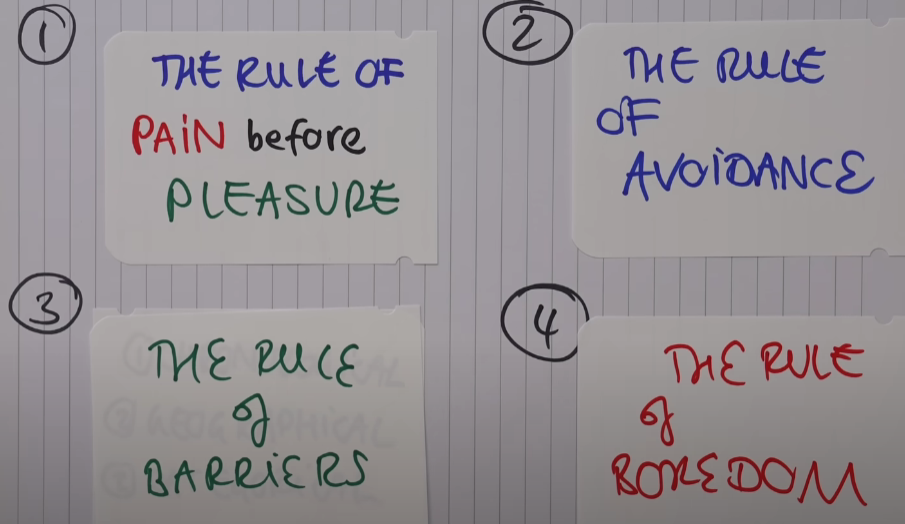 1
THE RULE OF
PAiN before
PLEASURE
2
THE RULE
OF
AVOiDANCE
3
THE RULE
of
BARRiERS
GEOGRAPHICAL
4
THE RULE
of
BOREDOM